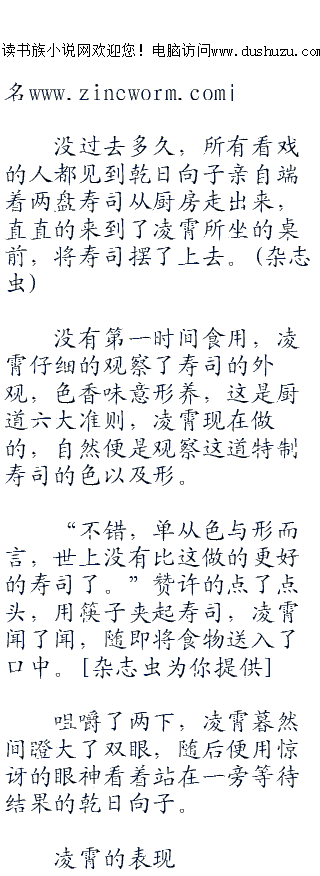 读书族小说网欢迎您！电脑访问www.dushuzu.com
名www.zincworm.com¡
没过去多久，所有看戏
的人都见到乾日向子亲自端
着两盘寿司从厨房走出来，
直直的来到了凌霄所坐的桌
前，将寿司摆了上去。(杂志
虫)
没有第一时间食用，凌
霄仔细的观察了寿司的外
观，色香味意形养，这是厨
道六大准则，凌霄现在做
的，自然便是观察这道特制
寿司的色以及形。
“不错，单从色与形而
言，世上没有比这做的更好
的寿司了。”赞许的点了点
头，用筷子夹起寿司，凌霄
闻了闻，随即将食物送入了
口中。[杂志虫为你提供]
咀嚼了两下，凌霄暮然
间瞪大了双眼，随后便用惊
讶的眼神看着站在一旁等待
结果的乾日向子。
凌霄的表现